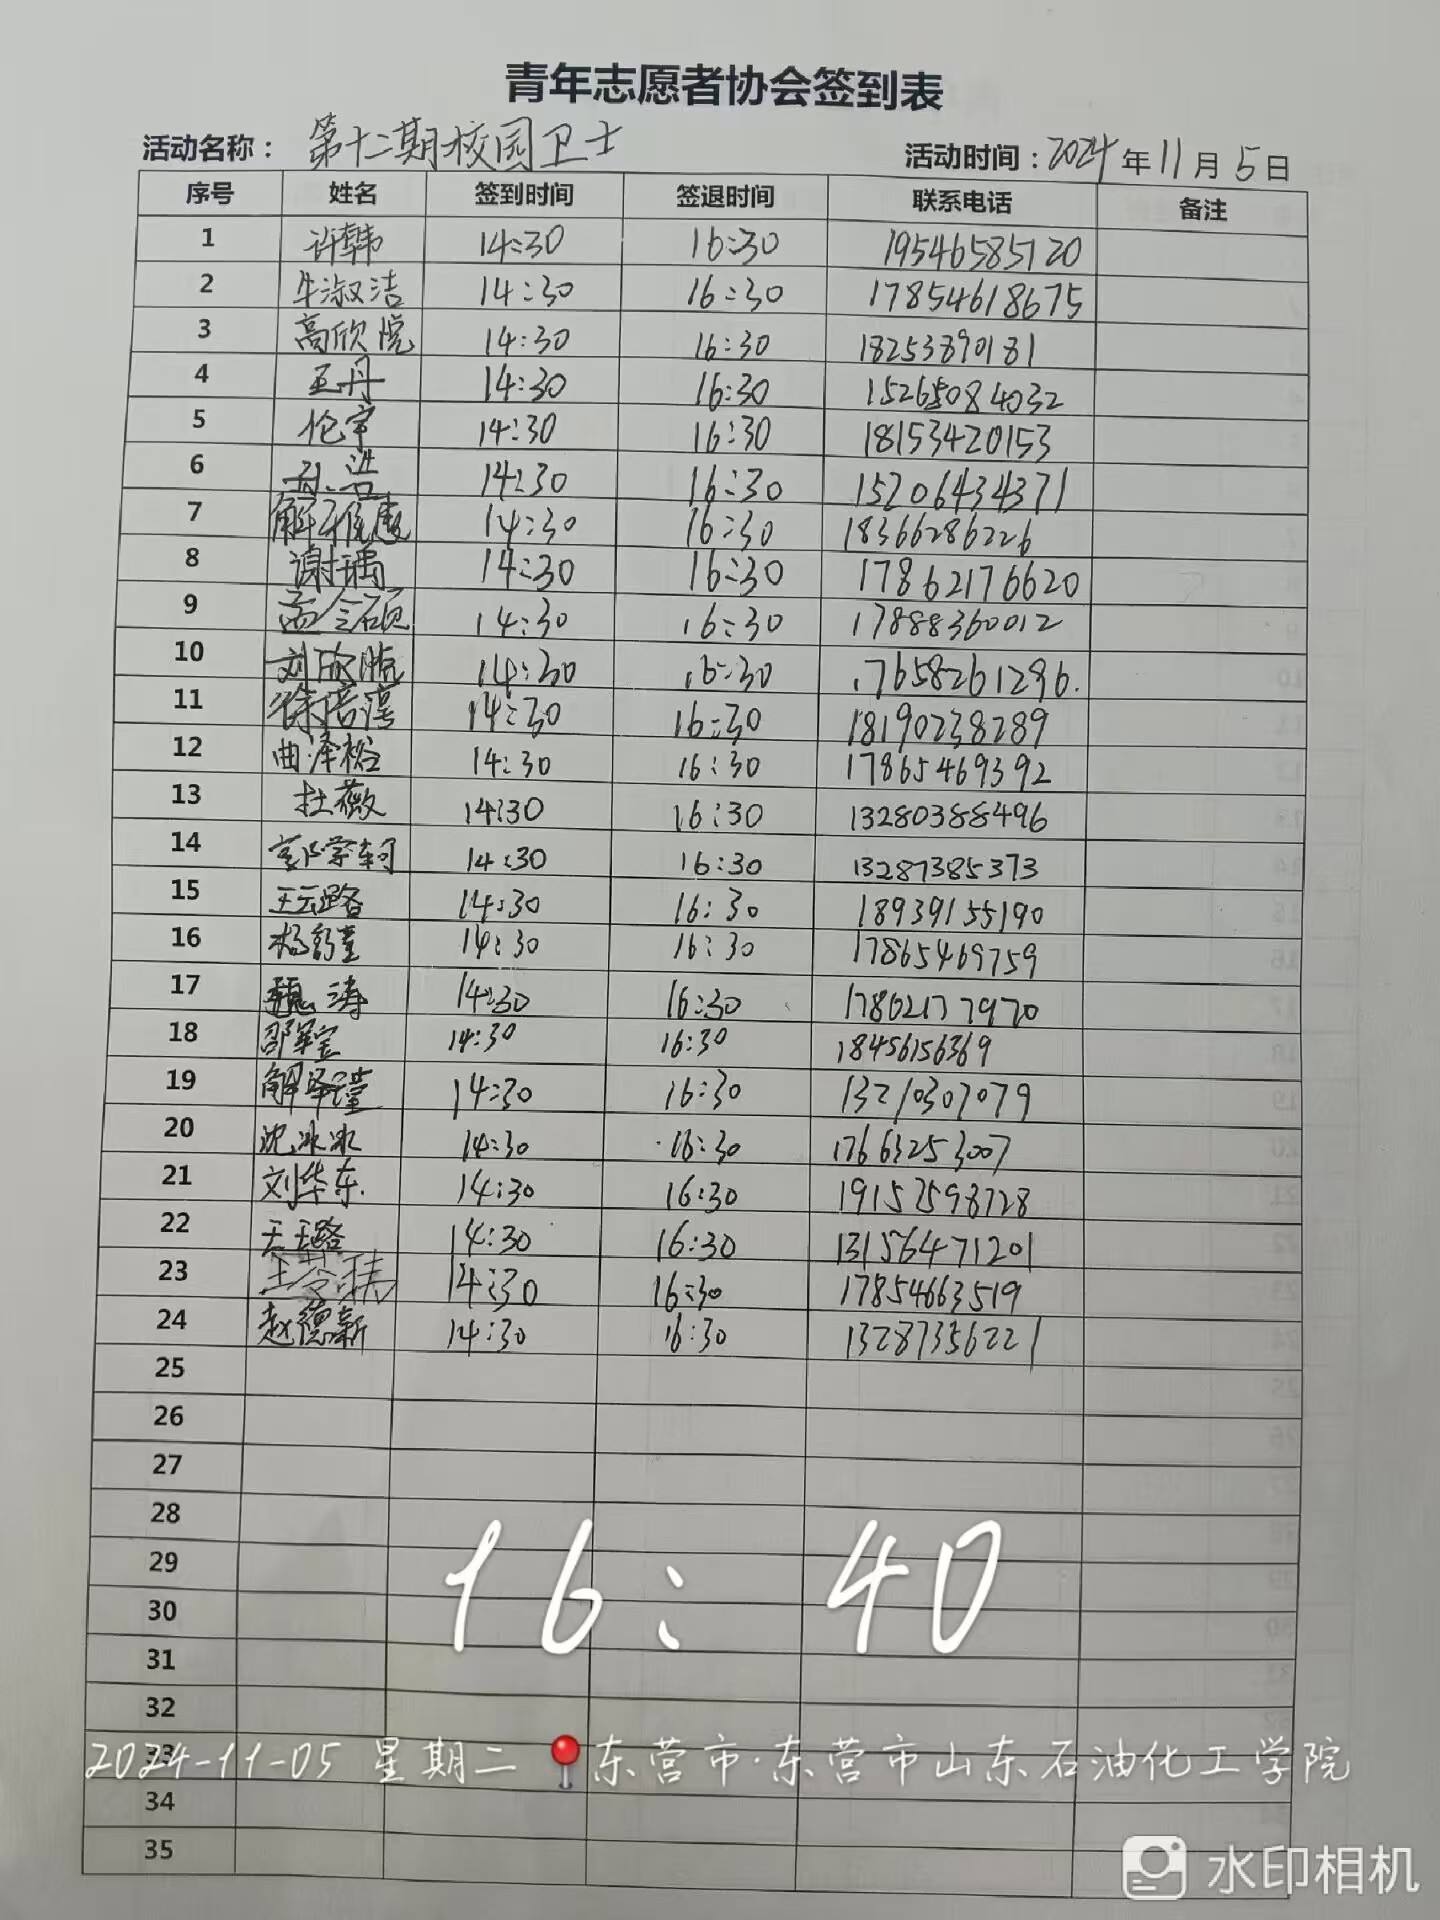 青年志愿者协会签到表
活动名称： 第十二期校园卫士 活动时间：2024年11月5日
序号 姓名 签到时间 签退时间 联系电话 备注
1 许韩 14:30 16:30 19546585120
2 牛淑洁 14:30 16:30 17854618675
3 高欣院 14:30 16:30 18253890181
4 王丹 14:30 16:30 15265084032
5 伦宇 14:30 16:30 18153420153
6 孙浩 14:30 16:30 15206434371
7 解雅惠 14:30 16:30 18366286226
8 谢瑀 14:30 16:30 17862176620
9 孟令硕 14:30 16:30 17888360012
10 刘欣 14:30 16:30 17658261296.
11 徐培 14:30 16:30 18190238289
12 曲泽裕 14:30 16:30 17865469392
13 杜薇 14:30 16:30 13280388496
14 14:30 16:30 13287385373
15 王云路 14:30 16:30 18939155190
16 杨 14:30 16:30 17865469759
17 魏涛 14:30 16:30 17862177970
18 邵军宝 14:30 16:30 18456156369
19 解泽瑾 14:30 16:30 13210307079
20 沈冰冰 14:30 16:30 17663253007
21 刘华东. 14:30 16:30 19157598728
22 王玉路 14:30 16:30 13156471201
23 王 14:30 16:30 17854663519
24 赵德新 14:30 16:30 13287356221
25
26
27
28
29
16:40
30
31
32
33
2024-11-05 星期二 东营市·东营市山东石油化工学院
34
35
水印相机